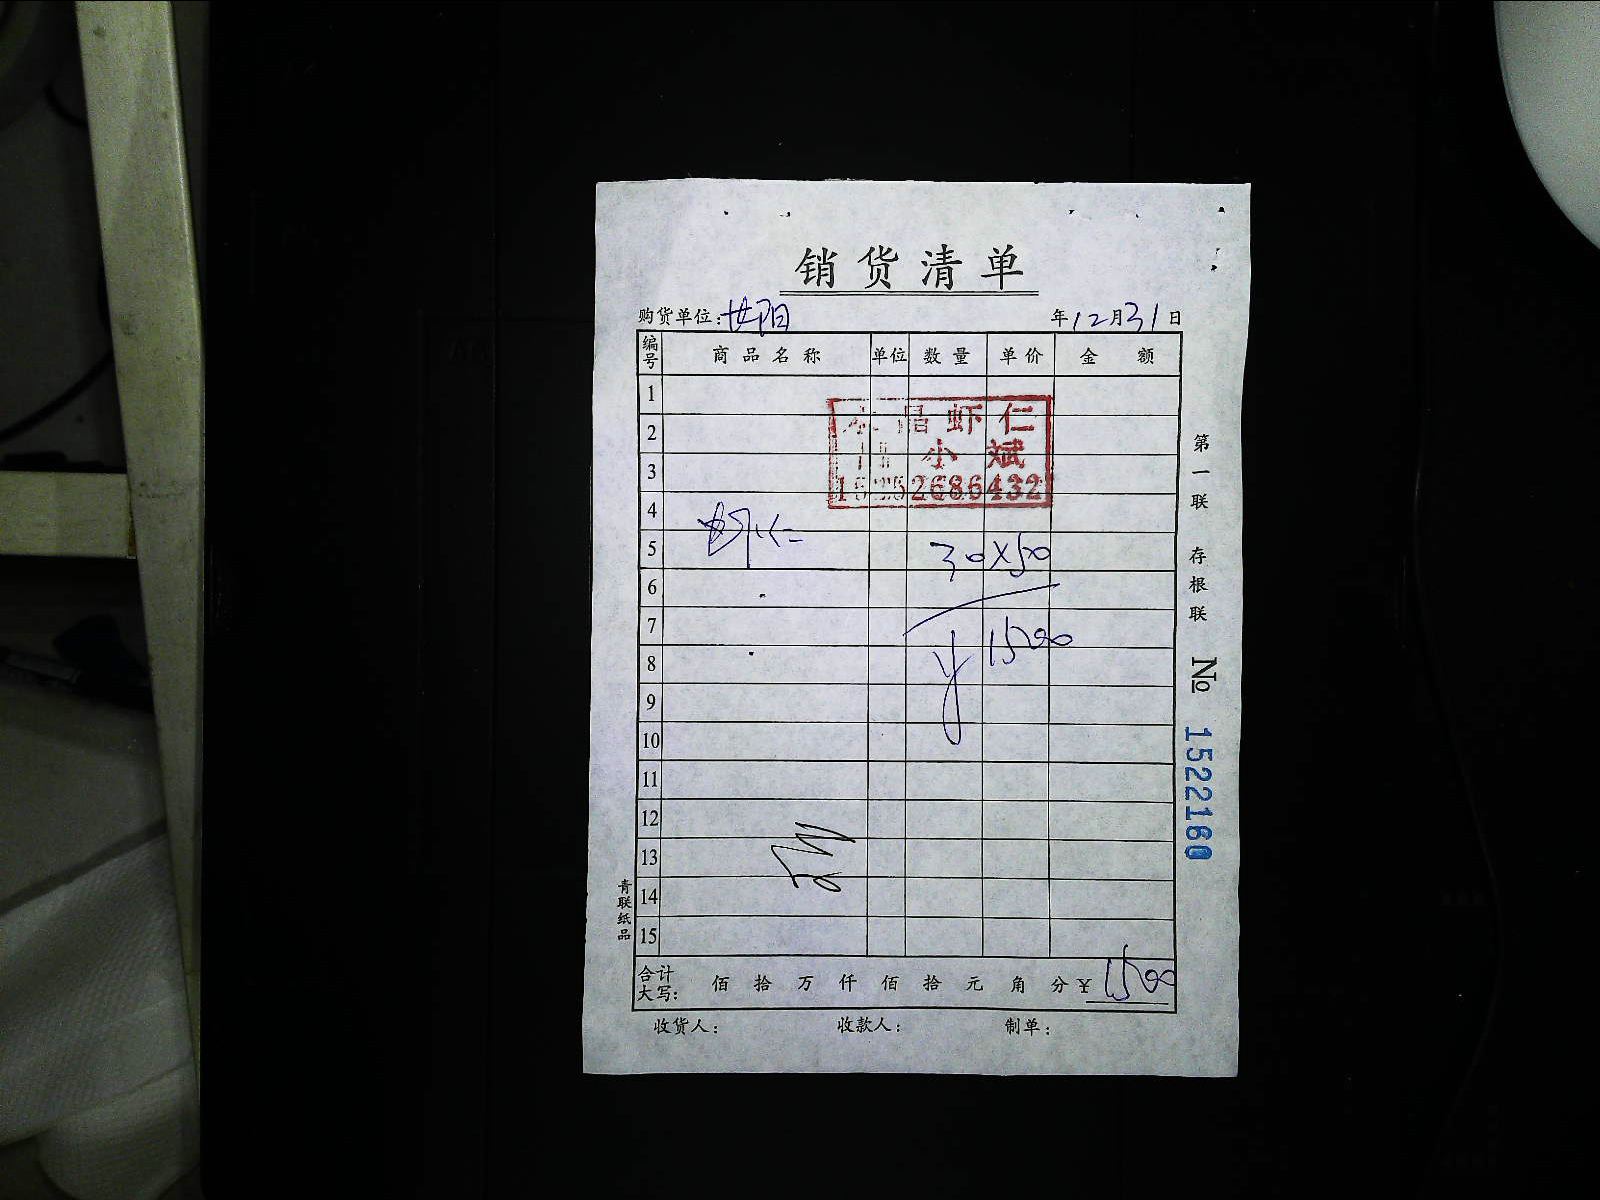 销货清单
购货单位: 世阳 年12月31日
编号 商品名称 单位 数量 单价 金额
1
水晶虾仁
2
小斌
3
15252686432
4
虾仁 30×50
5
6
7
¥1500
8
9
10
11
12
13
14
15
合计大写: 佰 拾 万 仟 佰 拾 元 角 分 ¥ 1500
收货人: 收款人: 制单:
第一联 存根联
No 1522160
青联纸品